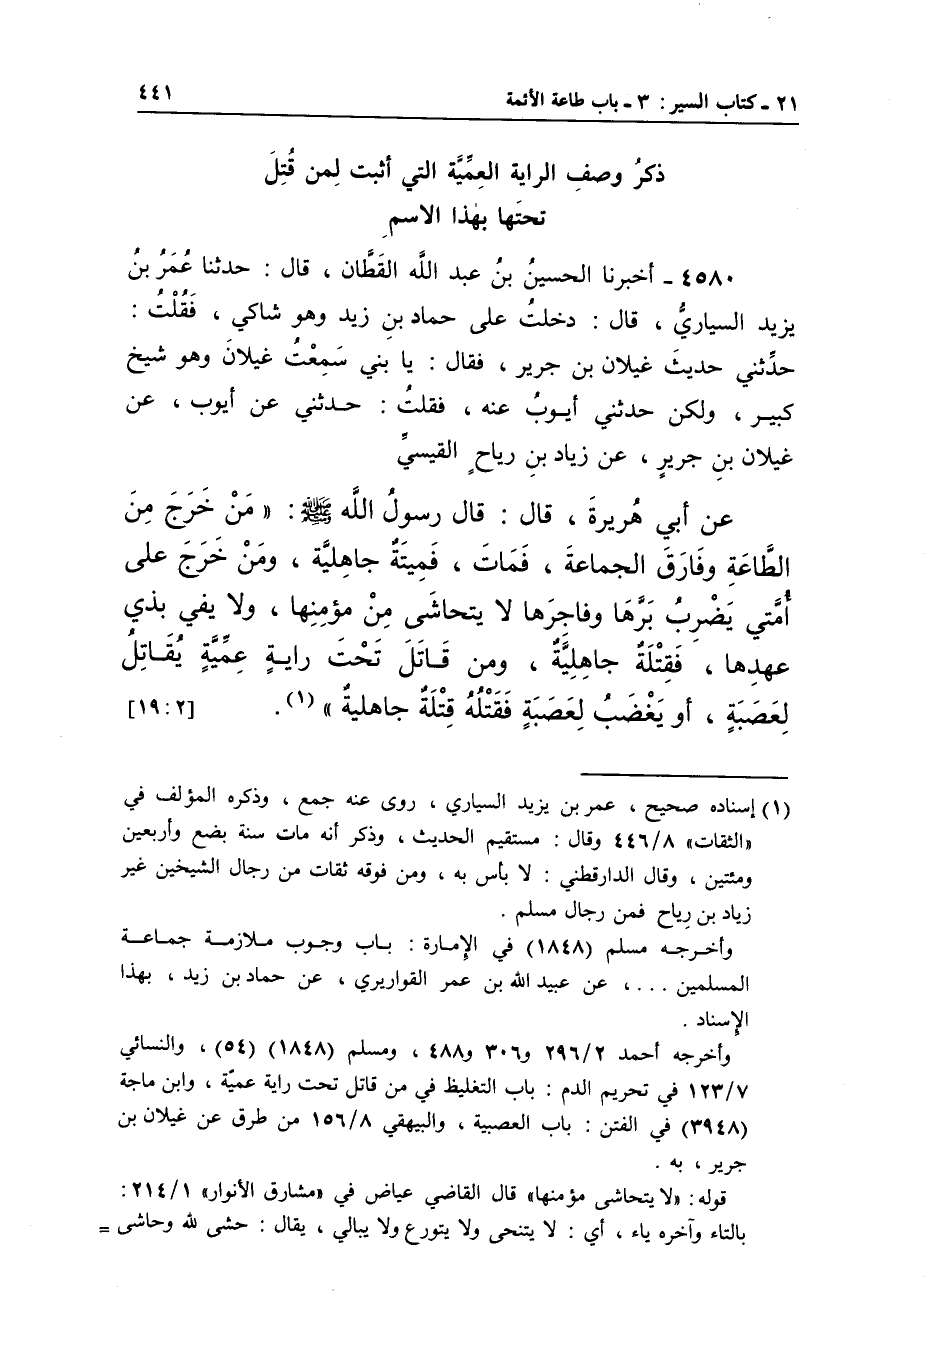 ٢١ ـ كتاب السير : ٣ ـ باب طاعة الأئمة ٤٤١
ذكرُ وصفِ الراية العِمِّيَّة التي أثبت لِمن قُتِلَ
تحتَها بهٰذا الاسمِ
٤٥٨٠ ـ أخبرنا الحسينُ بنُ عبد اللَّه القَطَّان ، قال : حدثنا عُمَرُ بنُ
يزيد السياريُّ ، قال : دخلتُ على حماد بنِ زيد وهو شاكي ، فَقُلْتُ :
حدِّثني حديثَ غيلان بن جرير ، فقال : يا بني سَمِعْتُ غيلانَ وهو شيخ
كبيـر ، ولكن حدثني أيـوبُ عنه ، فقلتُ : حـدثني عن أيوب ، عن
غيلان بنِ جريرٍ ، عن زياد بنِ رياحٍ القيسيِّ
عن أبي هُريرةَ ، قال : قال رسولُ اللَّه ﷺ : « مَنْ خَرَجَ مِنَ
الطَّاعَةِ وفَارَقَ الجماعةَ ، فَمَاتَ ، فَمِيتَةٌ جاهليَّة ، ومَنْ خَرَجَ على
أُمَّتي يَضْرِبُ بَرَّهَا وفاجِرَها لا يتحاشَى مِنْ مؤمِنِها ، ولا يفي بذي
عهدِها ، فَقِتْلَةٌ جاهِلِيَّةٌ ، ومن قَـاتَلَ تَحْتَ رايـةٍ عِمِّيَّةٍ يُقَـاتِلُ
لِعَصَبَةٍ ، أو يَغْضَبُ لِعَصَبَةٍ فَقَتْلُهُ قِتْلَةٌ جاهليةٌ » (١) . [١٩:٢]
(١) إسناده صحيح ، عمر بن يزيد السياري ، روى عنه جمع ، وذكره المؤلف في
«الثقات» ٤٤٦/٨ وقال : مستقيم الحديث ، وذكر أنه مات سنة بضع وأربعين
ومئتين ، وقال الدارقطني : لا بأس به ، ومن فوقه ثقات من رجال الشيخين غير
زياد بن رِياح فمن رجال مسلم .
وأخـرجـه مسلم (١٨٤٨) في الإِمارة : بـاب وجـوب مـلازمـة جمـاعـة
المسلمين ... ، عن عبيد الله بن عمر القواريري ، عن حماد بن زيد ، بهذا
الإِسناد .
وأخرجه أحمد ٢٩٦/٢ و٣٠٦ و٤٨٨ ، ومسلم (١٨٤٨) (٥٤) ، والنسائي
١٢٣/٧ في تحريم الدم : باب التغليظ في من قاتل تحت راية عميّة ، وابن ماجة
(٣٩٤٨) في الفتن : باب العصبية ، والبيهقي ١٥٦/٨ من طرق عن غيلان بن
جرير ، به .
قوله : «لا يتحاشى مؤمنها» قال القاضي عياض في «مشارق الأنوار» ٢١٤/١ :
بالتاء وآخره ياء ، أي : لا يتنحى ولا يتورع ولا يبالي ، يقال : حشى لله وحاشى =